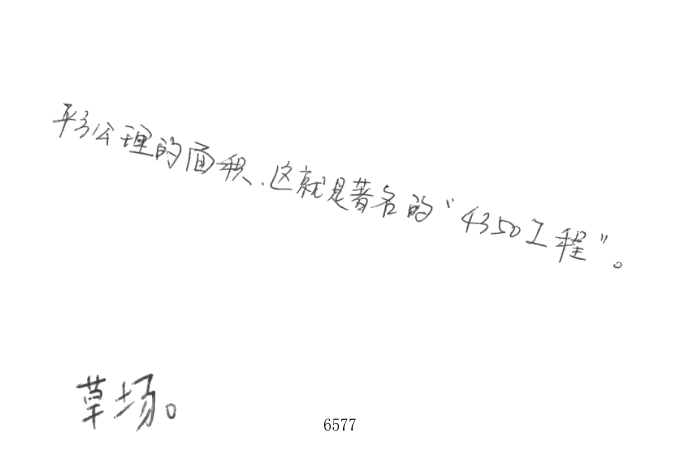 平方公理的面积、这就是著名的“4350工程”。
草场。
6577